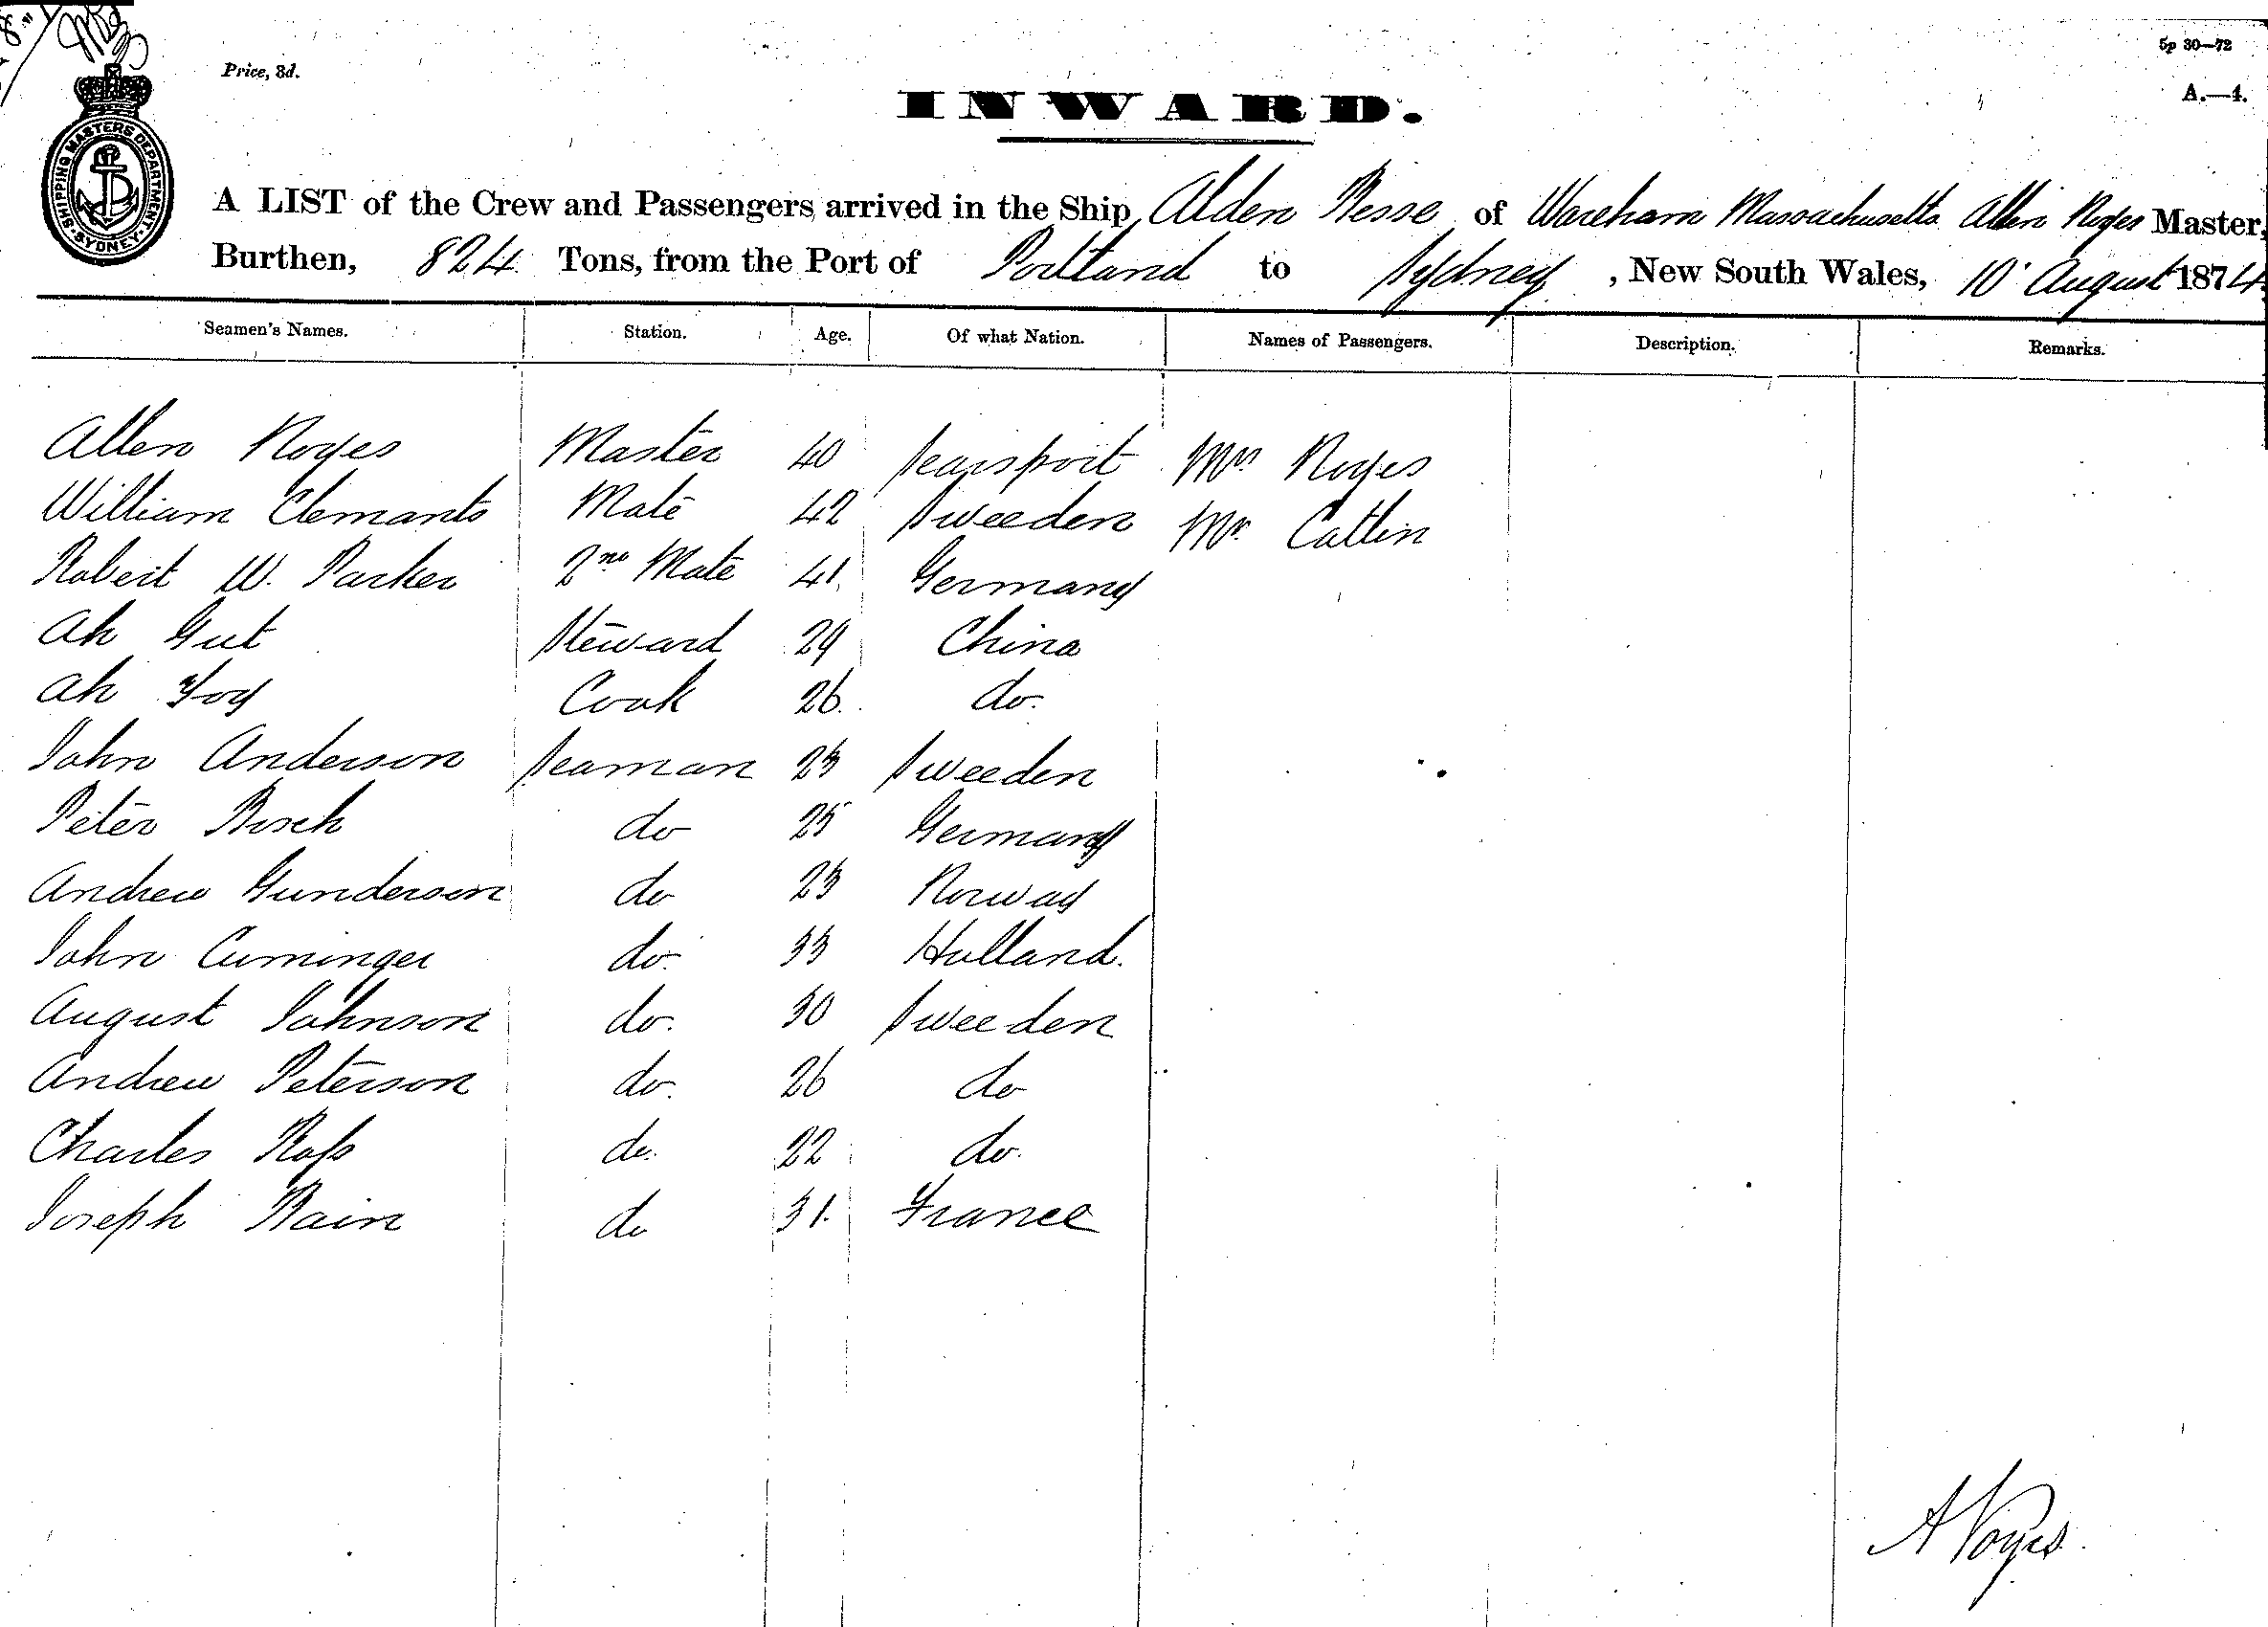 5p 30—72
Price, 3d.
A.—4.
SHIPPING MASTERS DEPARTMENT · SYDNEY ·
INWARD.
A LIST of the Crew and Passengers arrived in the Ship Alden Besse of Wareham Massachusetts Allen Noyes Master,
Burthen, 824 Tons, from the Port of Portland to Sydney, New South Wales, 10 August 1874
Seamen's Names. Station. Age. Of what Nation. Names of Passengers. Description. Remarks.
Allen Noyes Master 40 Searsport Mrs Noyes
William Clemants Mate 42 Sweeden Mr. Catlin
Robert W. Parker 2nd Mate 41. Germany
Ah Gut Steward 29 China
Ah Foy Cook 26. do.
John Anderson Seaman 23 Sweeden
Peter Bosch do 25 Germany
Andrew Gunderson do 23 Norway
John Cuminger do. 33 Holland.
August Johnson do. 30 Sweeden
Andrew Peterson do. 26 do
Charles Ross do. 22 do.
Joseph Bain do 31. France
A Noyes.